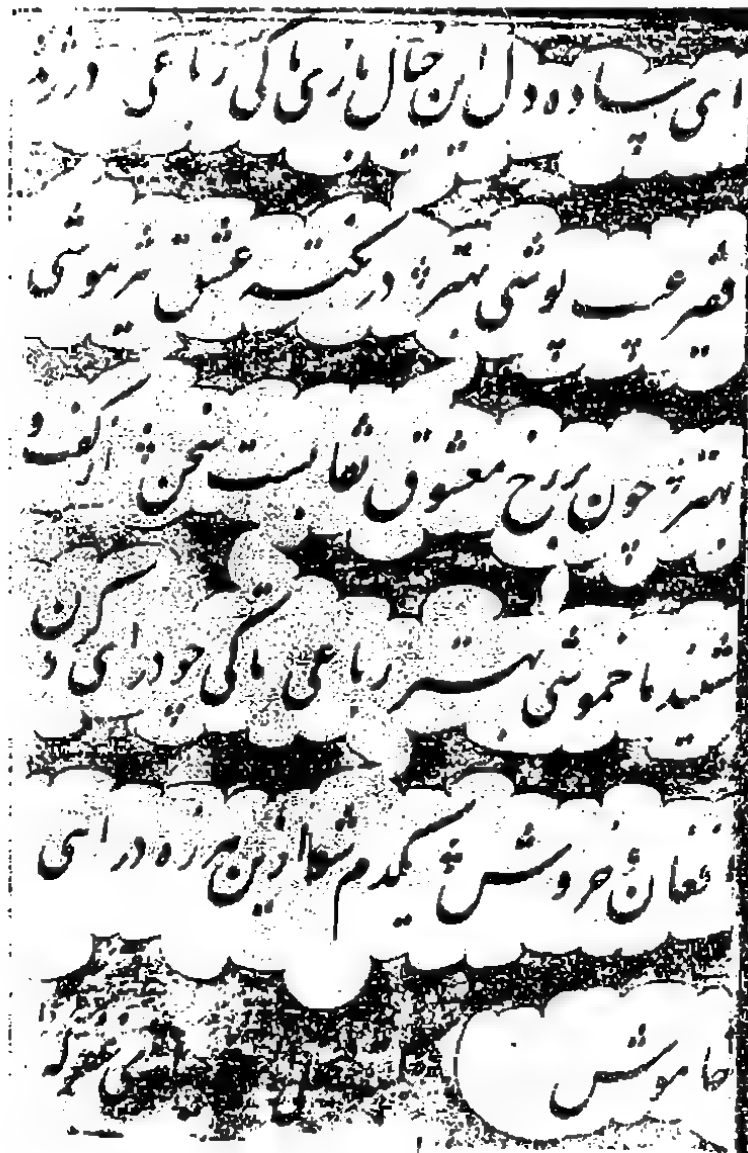 ای ساده دل این خیال بازی تا کی رباعی در
فقر عیب پوشی بهتر در نکته عشق تیز هوشی
بهتر چون بر رخ معشوق نقابست سخن از گفت و
شنید ما خموشی بهتر رباعی تا کی چو درای کردن
افغان و خروش یکدم شو ازین هرزه درائی
خاموش